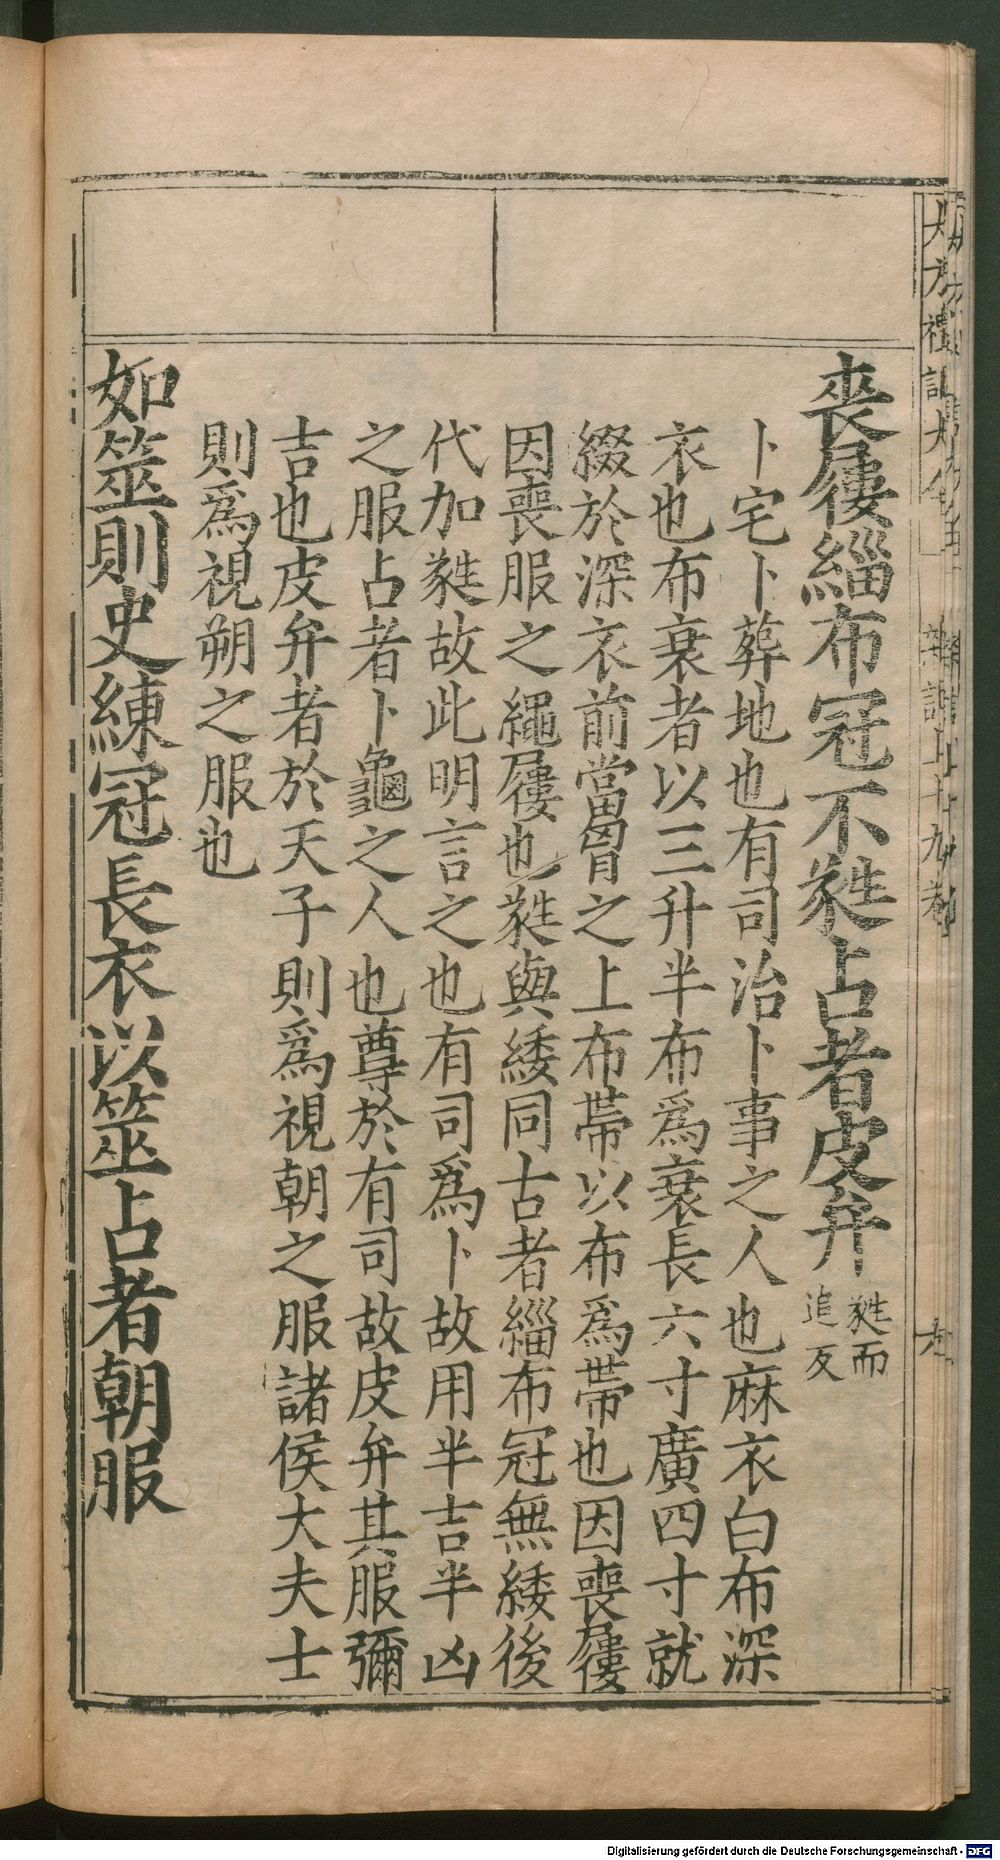 喪屨緇布冠不蕤占者皮弁蕤而追反
卜宅卜葬地也有司治卜事之人也麻衣白布深
衣也布衰者以三升半布爲衰長六寸廣四寸就
綴於深衣前當胷之上布帶以布爲帶也因喪屨
因喪服之繩屨也蕤與緌同古者緇布冠無緌後
代加蕤故此明言之也有司爲卜故用半吉半凶
之服占者卜龜之人也尊於有司故皮弁其服彌
吉也皮弁者於天子則爲視朝之服諸侯大夫士
則爲視朔之服也
如筮則史練冠長衣以筮占者朝服
Digitalisierung gefördert durch die Deutsche Forschungsgemeinschaft - DFG